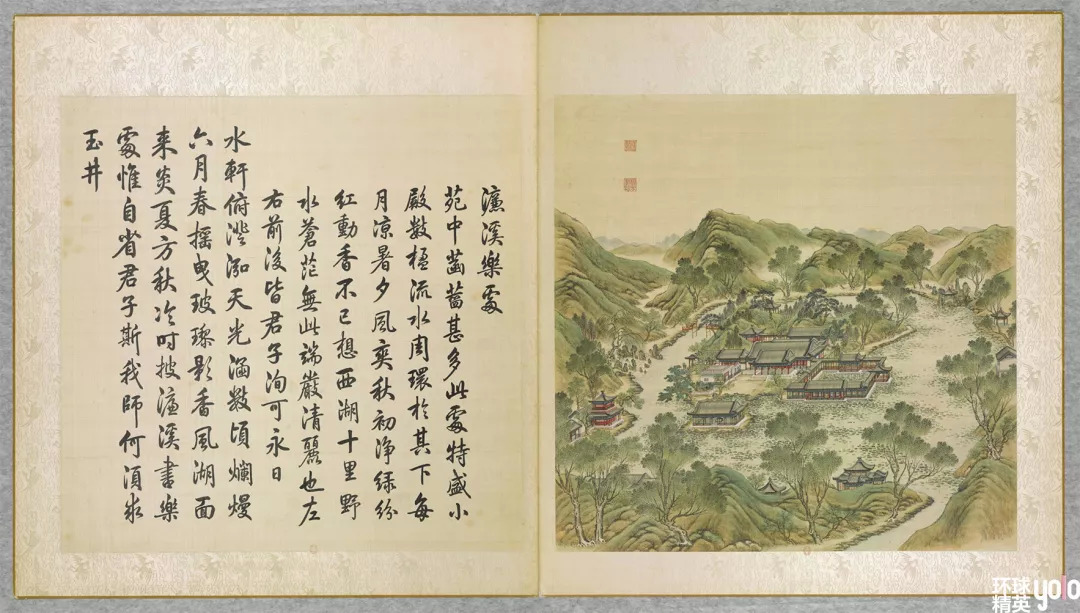 濂溪樂處
苑中菡萏甚多此處特盛小
殿數楹流水周環於其下每
月凉暑夕風爽秋初淨緑紛
紅動香不已想西湖十里野
水蒼茫無此端嚴清麗也左
右前後皆君子洵可永日
水軒俯澄泓天光涵數頃爛熳
六月春摇曳玻瓈影香風湖面
来炎夏方秋冷時披濂溪書樂
處惟自省君子斯我師何須求
玉井
环球
精英
yolo